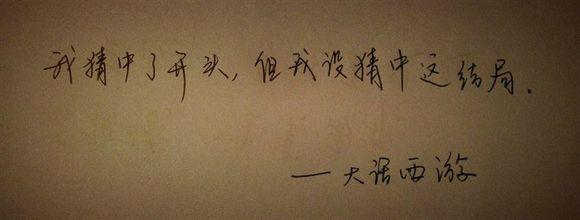 我猜中了开头,但我没猜中这结局.
—大话西游